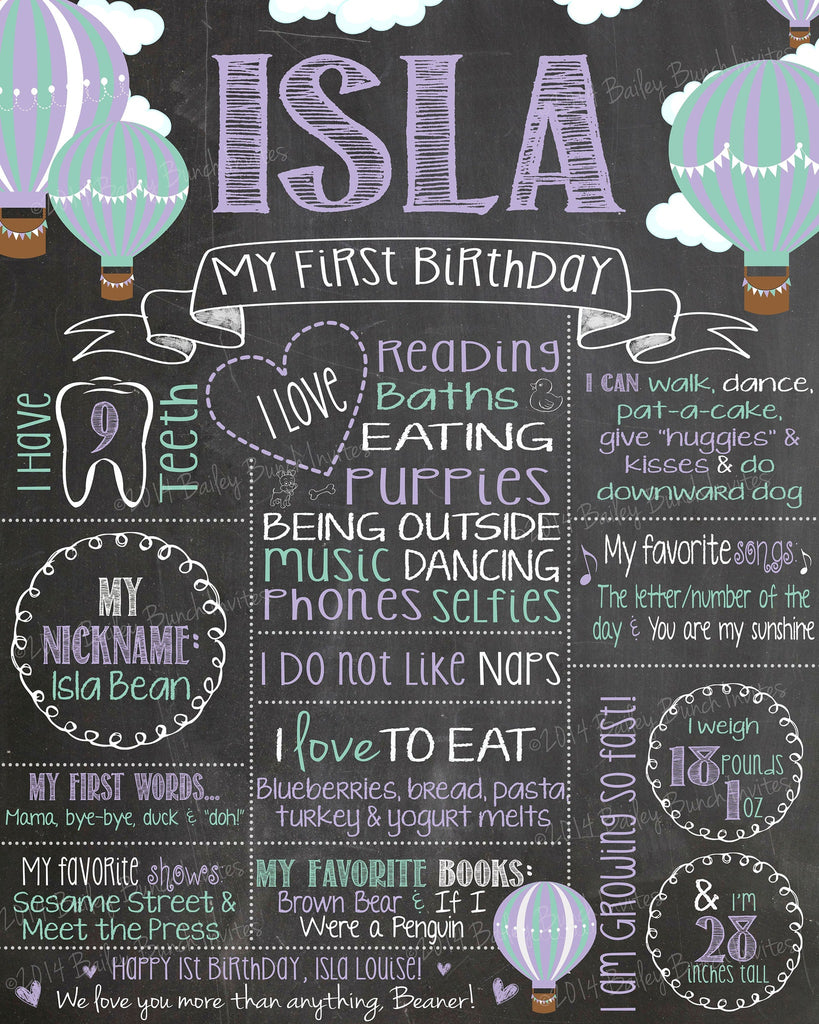 ISLA
MY FIRST BIRTHDAY
I Have
9
Teeth
I LOVE
Reading
Baths
EATING
PUPPIES
BEING OUTSIDE
MUSIC DANCING
PHONES SELFIES
I CAN walk, dance,
pat-a-cake,
give "huggies" &
kisses & do
downward dog
MY
NICKNAME:
Isla Bean
I DO NOT LIKE NAPS
My favorite songs:
The letter/number of the
day & You are my sunshine
I love TO EAT
Blueberries, bread, pasta,
turkey & yogurt melts
MY FIRST WORDS...
Mama, bye-bye, duck & "doh!"
My favorite shows:
Sesame Street &
Meet the Press
MY FAVORITE BOOKS:
Brown Bear & If I
Were a Penguin
I am GROWING so fast!
I weigh
18 POUNDS
1 OZ
& I'm
28
inches tall
HAPPY 1st BIRTHDAY, ISLA LOUISE!
We love you more than anything, Beaner!
©2014 Bailey Bunch Invites